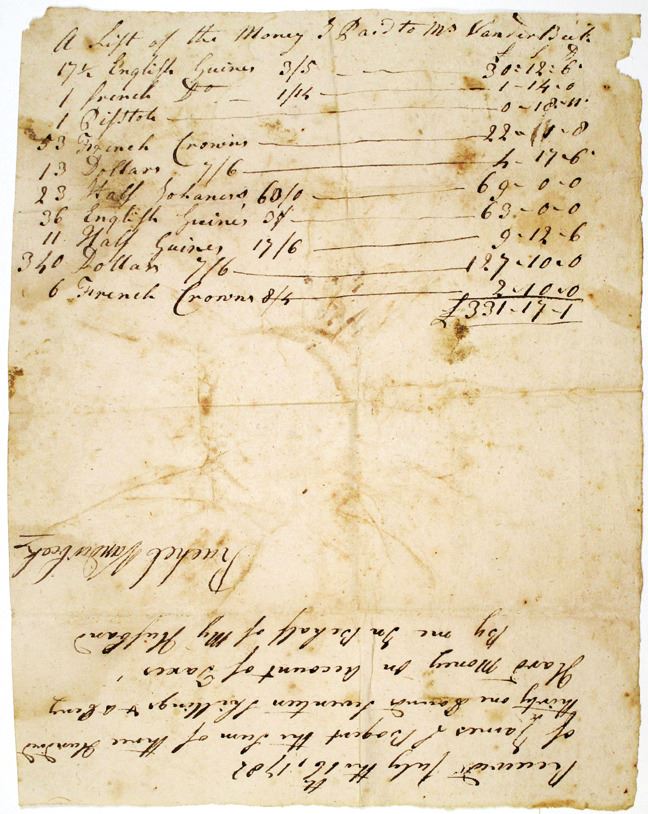 A List of the Money I Paid to Mrs VanderBeek
£ S D
17½ English Guines 3/5 30=12=6
1 French Do 1/14 1-14-0
1 Pistole 0-18-11
53 French Crowns 22-1-8
13 Dollars 7/6 4-17-6
23 Half Johanes 60/0 69-0-0
36 English Guines 63-0-0
11 Half Guines 17/6 9-12-6
340 Dollars 7/6 127-10-0
6 French Crowns 8/4 2-10-0
£331-17-1
Received July the 16th, 1782
of James Bogert the Sum of three Hundred
thirty one Pounds Seventeen Shillings & a Peny
Hard Money On Account of Taxes
By me In Behalf of My Husband
Rachel Vanderbeek